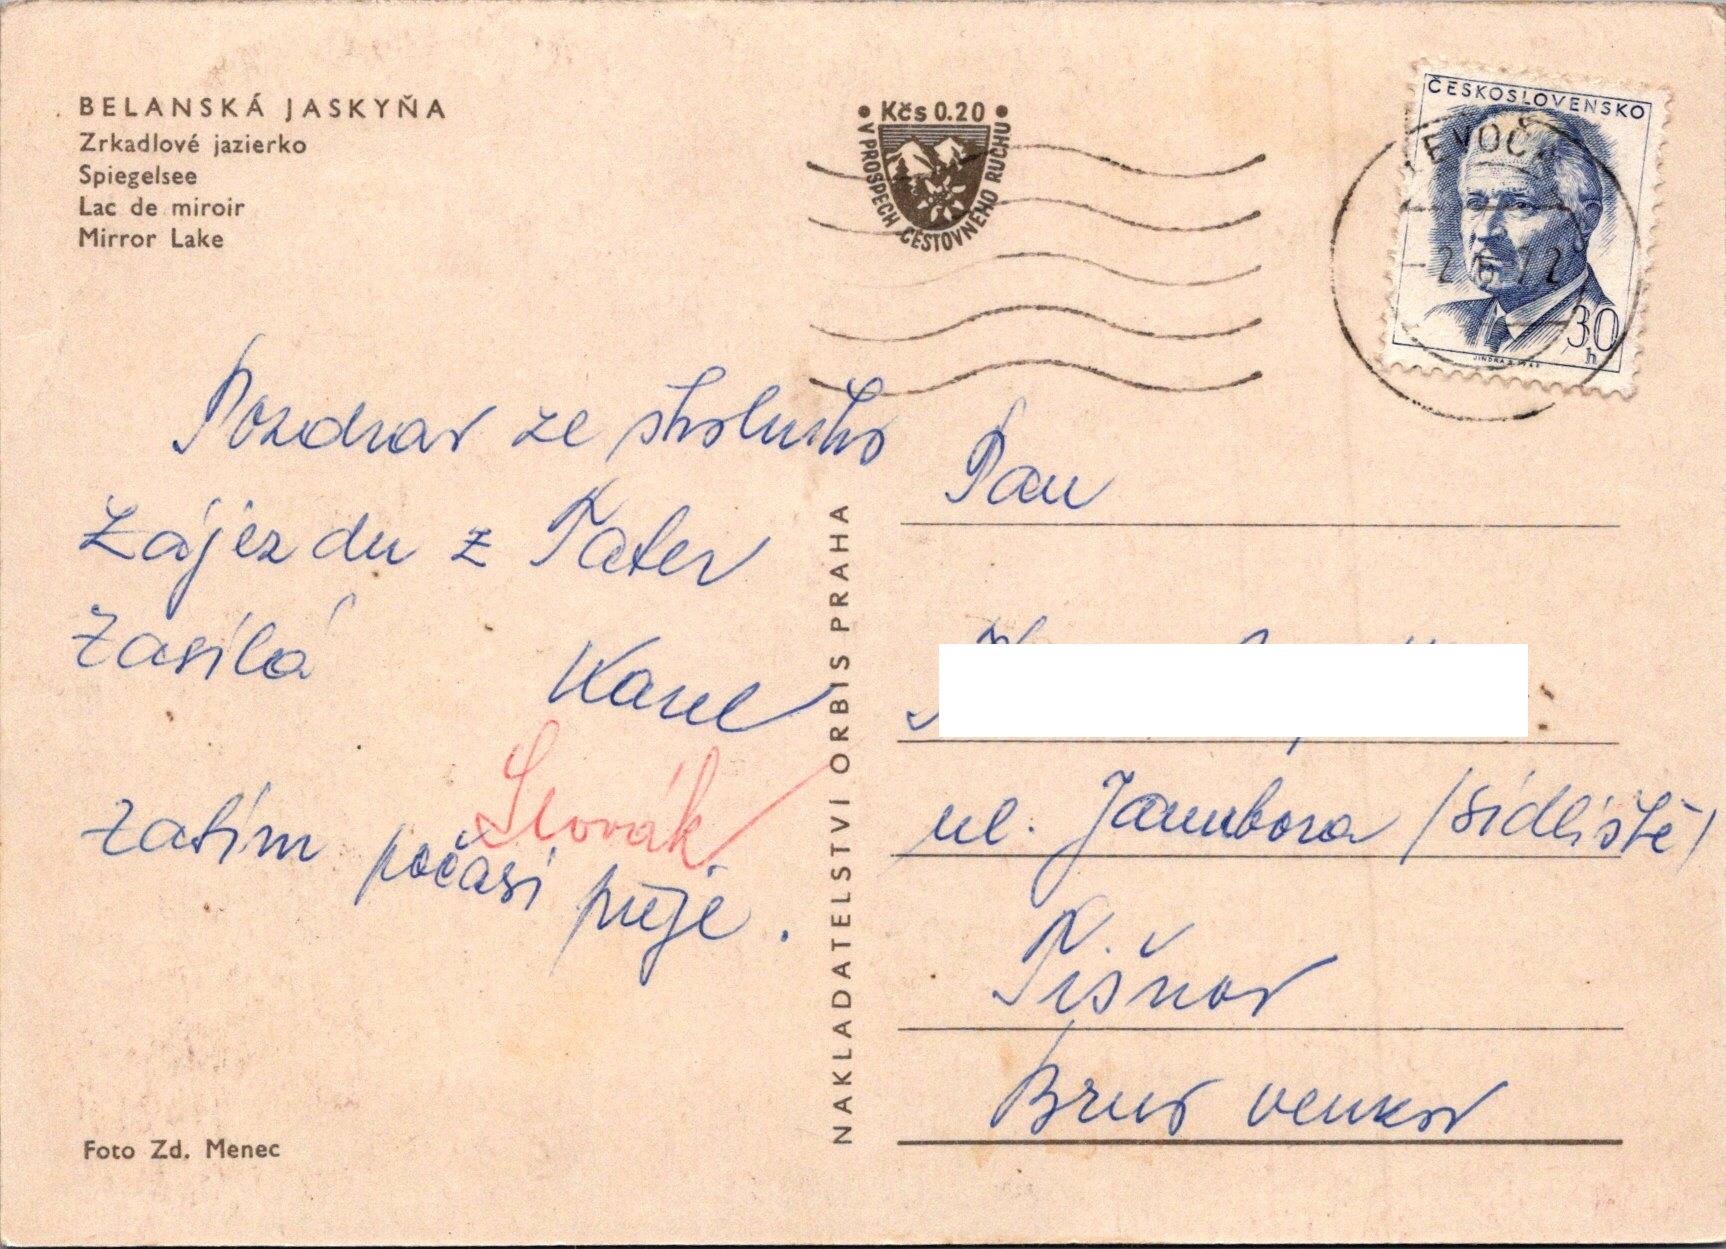 BELANSKÁ JASKYŇA
Zrkadlové jazierko
Spiegelsee
Lac de miroir
Mirror Lake
Kčs 0.20
V PROSPECH CESTOVNÉHO RUCHU
ČESKOSLOVENSKO
30
h
LEVOČA
-2.6.72
Pozdrav ze školního
zájezdu z Tater
zasílá
Karel
Slovák
zatím počasí přeje.
NAKLADATELSTVÍ ORBIS PRAHA
Pan
ul. Jamborova (sídliště)
Tišnov
Brno venkov
Foto Zd. Menec